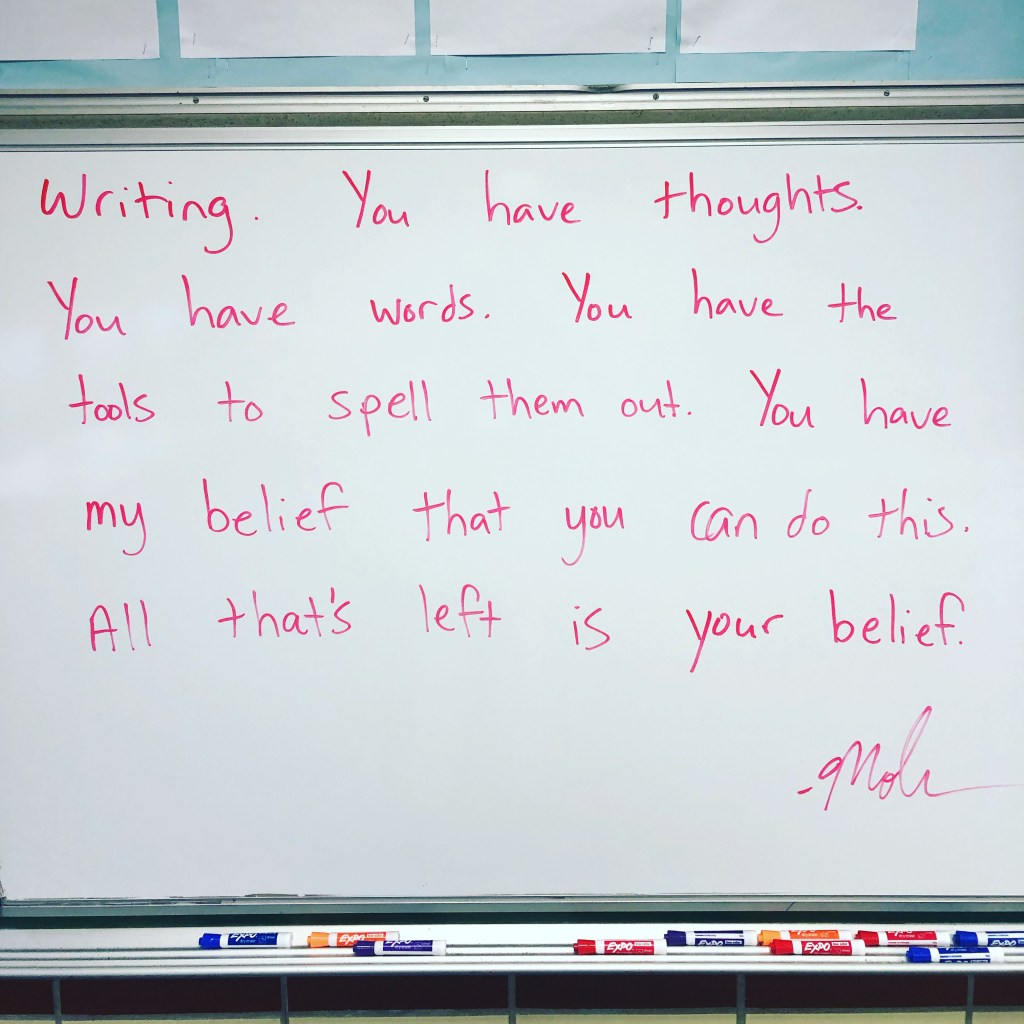 Writing. You have thoughts.
You have words. You have the
tools to spell them out. You have
my belief that you can do this.
All that's left is your belief.
EXPO EXPO EXPO EXPO EXPO EXPO